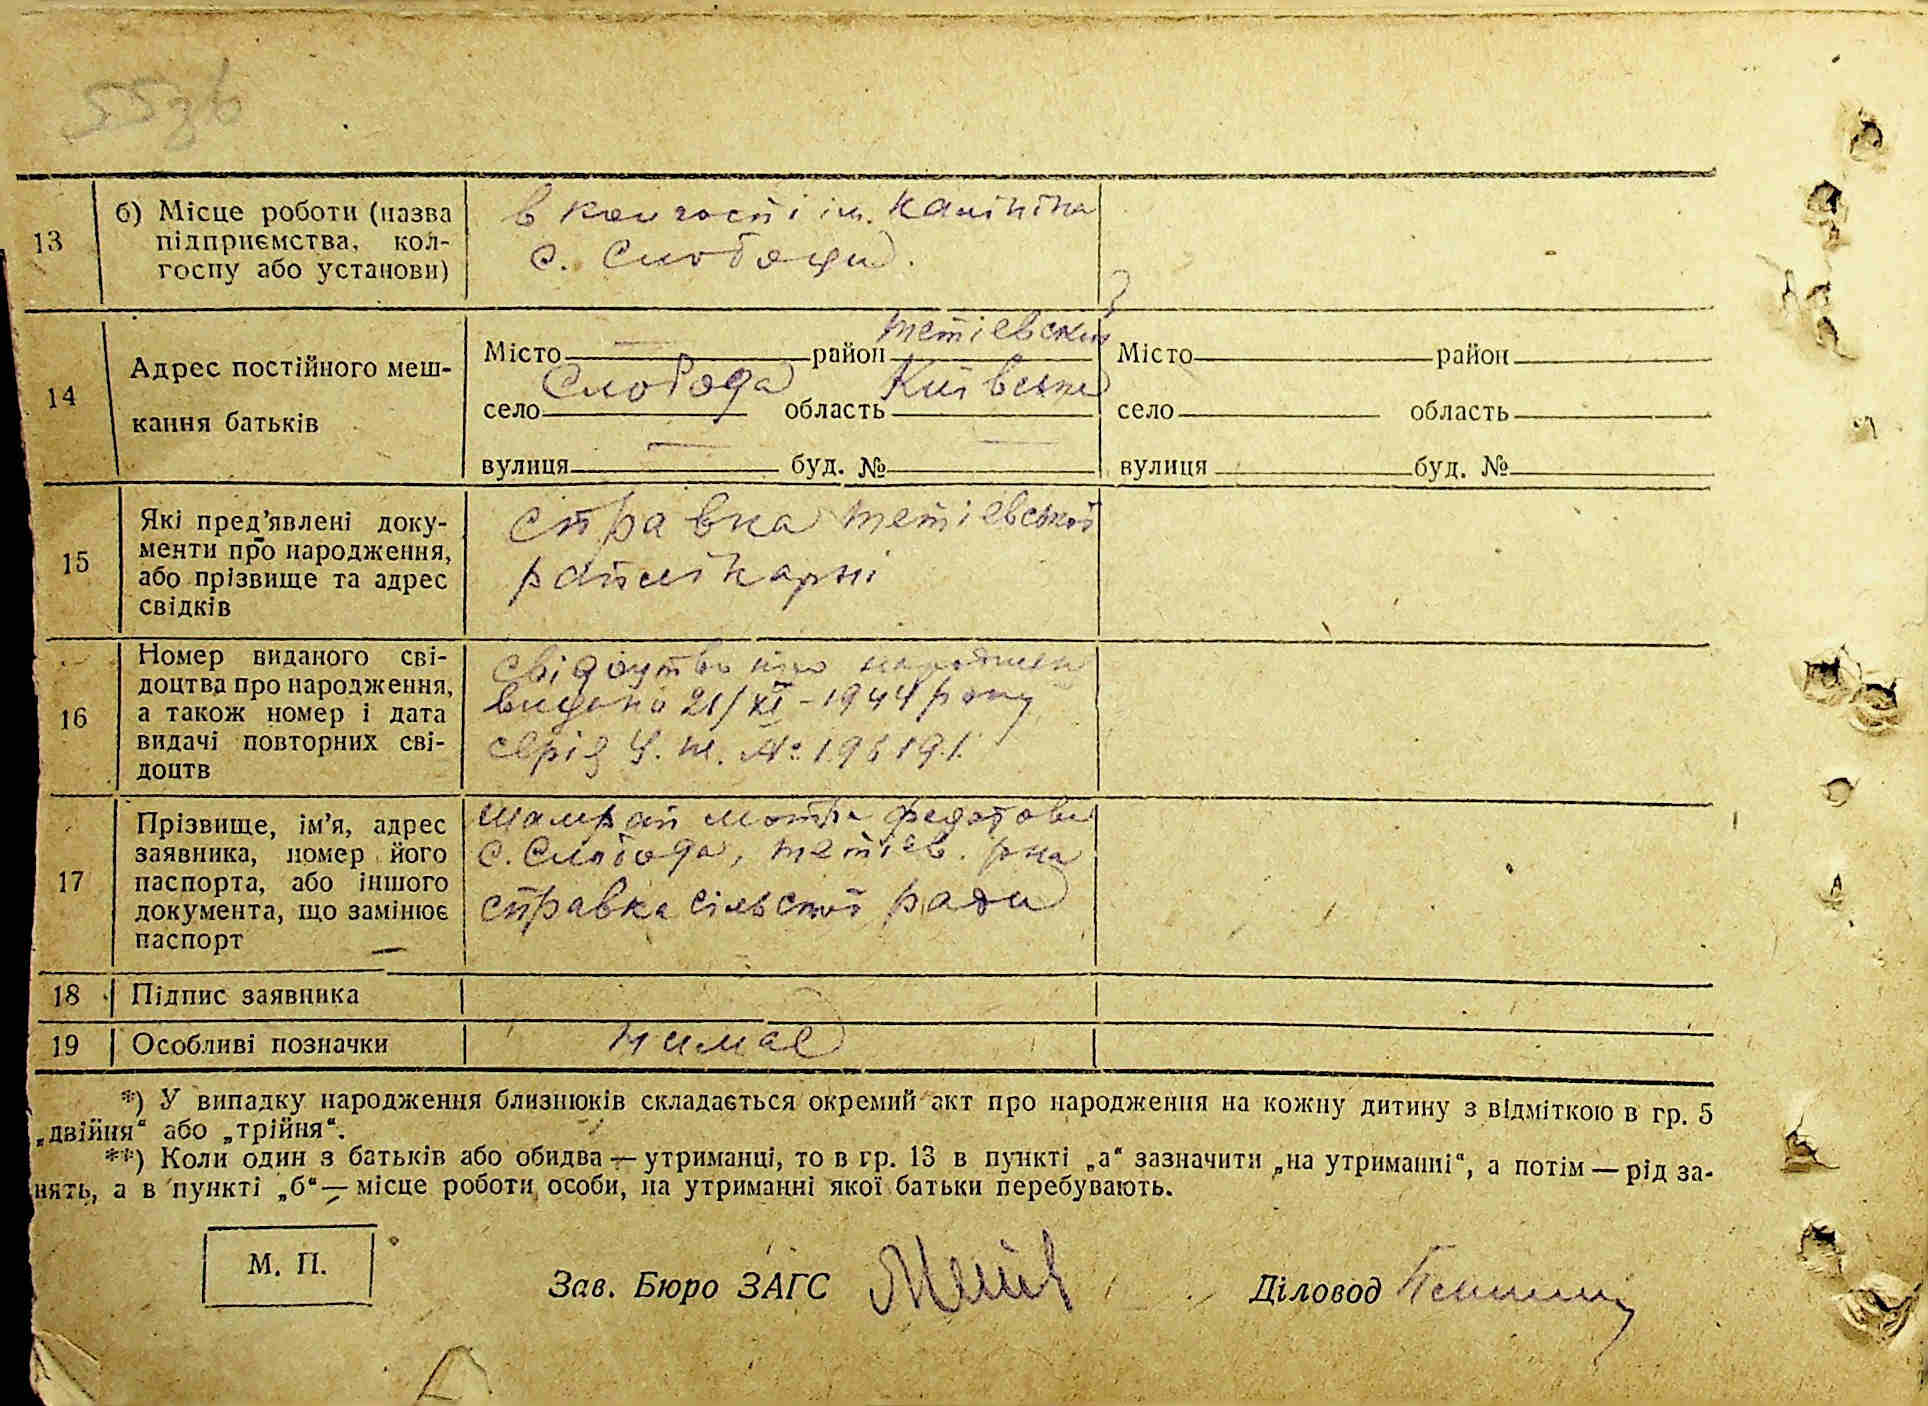 55зв
13
б) Місце роботи (назва
підприємства, кол-
госпу або установи)
в колгоспі ім. Калініна
с. Слободи.
14
Адрес постійного меш-
кання батьків
Місто — район Тетіевский
село Слобода область Київська
вулиця — буд. № —
Місто район
село область
вулиця буд. №
15
Які пред’явлені доку-
менти про народження,
або прізвище та адрес
свідків
справка Тетіевської
райлікарні
16
Номер виданого сві-
доцтва про народження,
а також номер і дата
видачі повторних сві-
доцтв
свідоцтво про народжен
видано 21/XI – 1944 року
серія № 196191
17
Прізвище, ім’я, адрес
заявника, номер його
паспорта, або іншого
документа, що замінює
паспорт
Шамрай Мотря Федотовн
с. Слобода, Тетіев. р-на
справка сільської ради
18 Підпис заявника
19 Особливі позначки
нимає
*) У випадку народження близнюків складається окремий акт про народження на кожну дитину з відміткою в гр. 5
„двійня“ або „трійня“.
**) Коли один з батьків або обидва — утриманці, то в гр. 13 в пункті „а“ зазначити „на утриманні“, а потім — рід за-
нять, а в пункті „б“ — місце роботи особи, на утриманні якої батьки перебувають.
М. П.
Зав. Бюро ЗАГС
Діловод